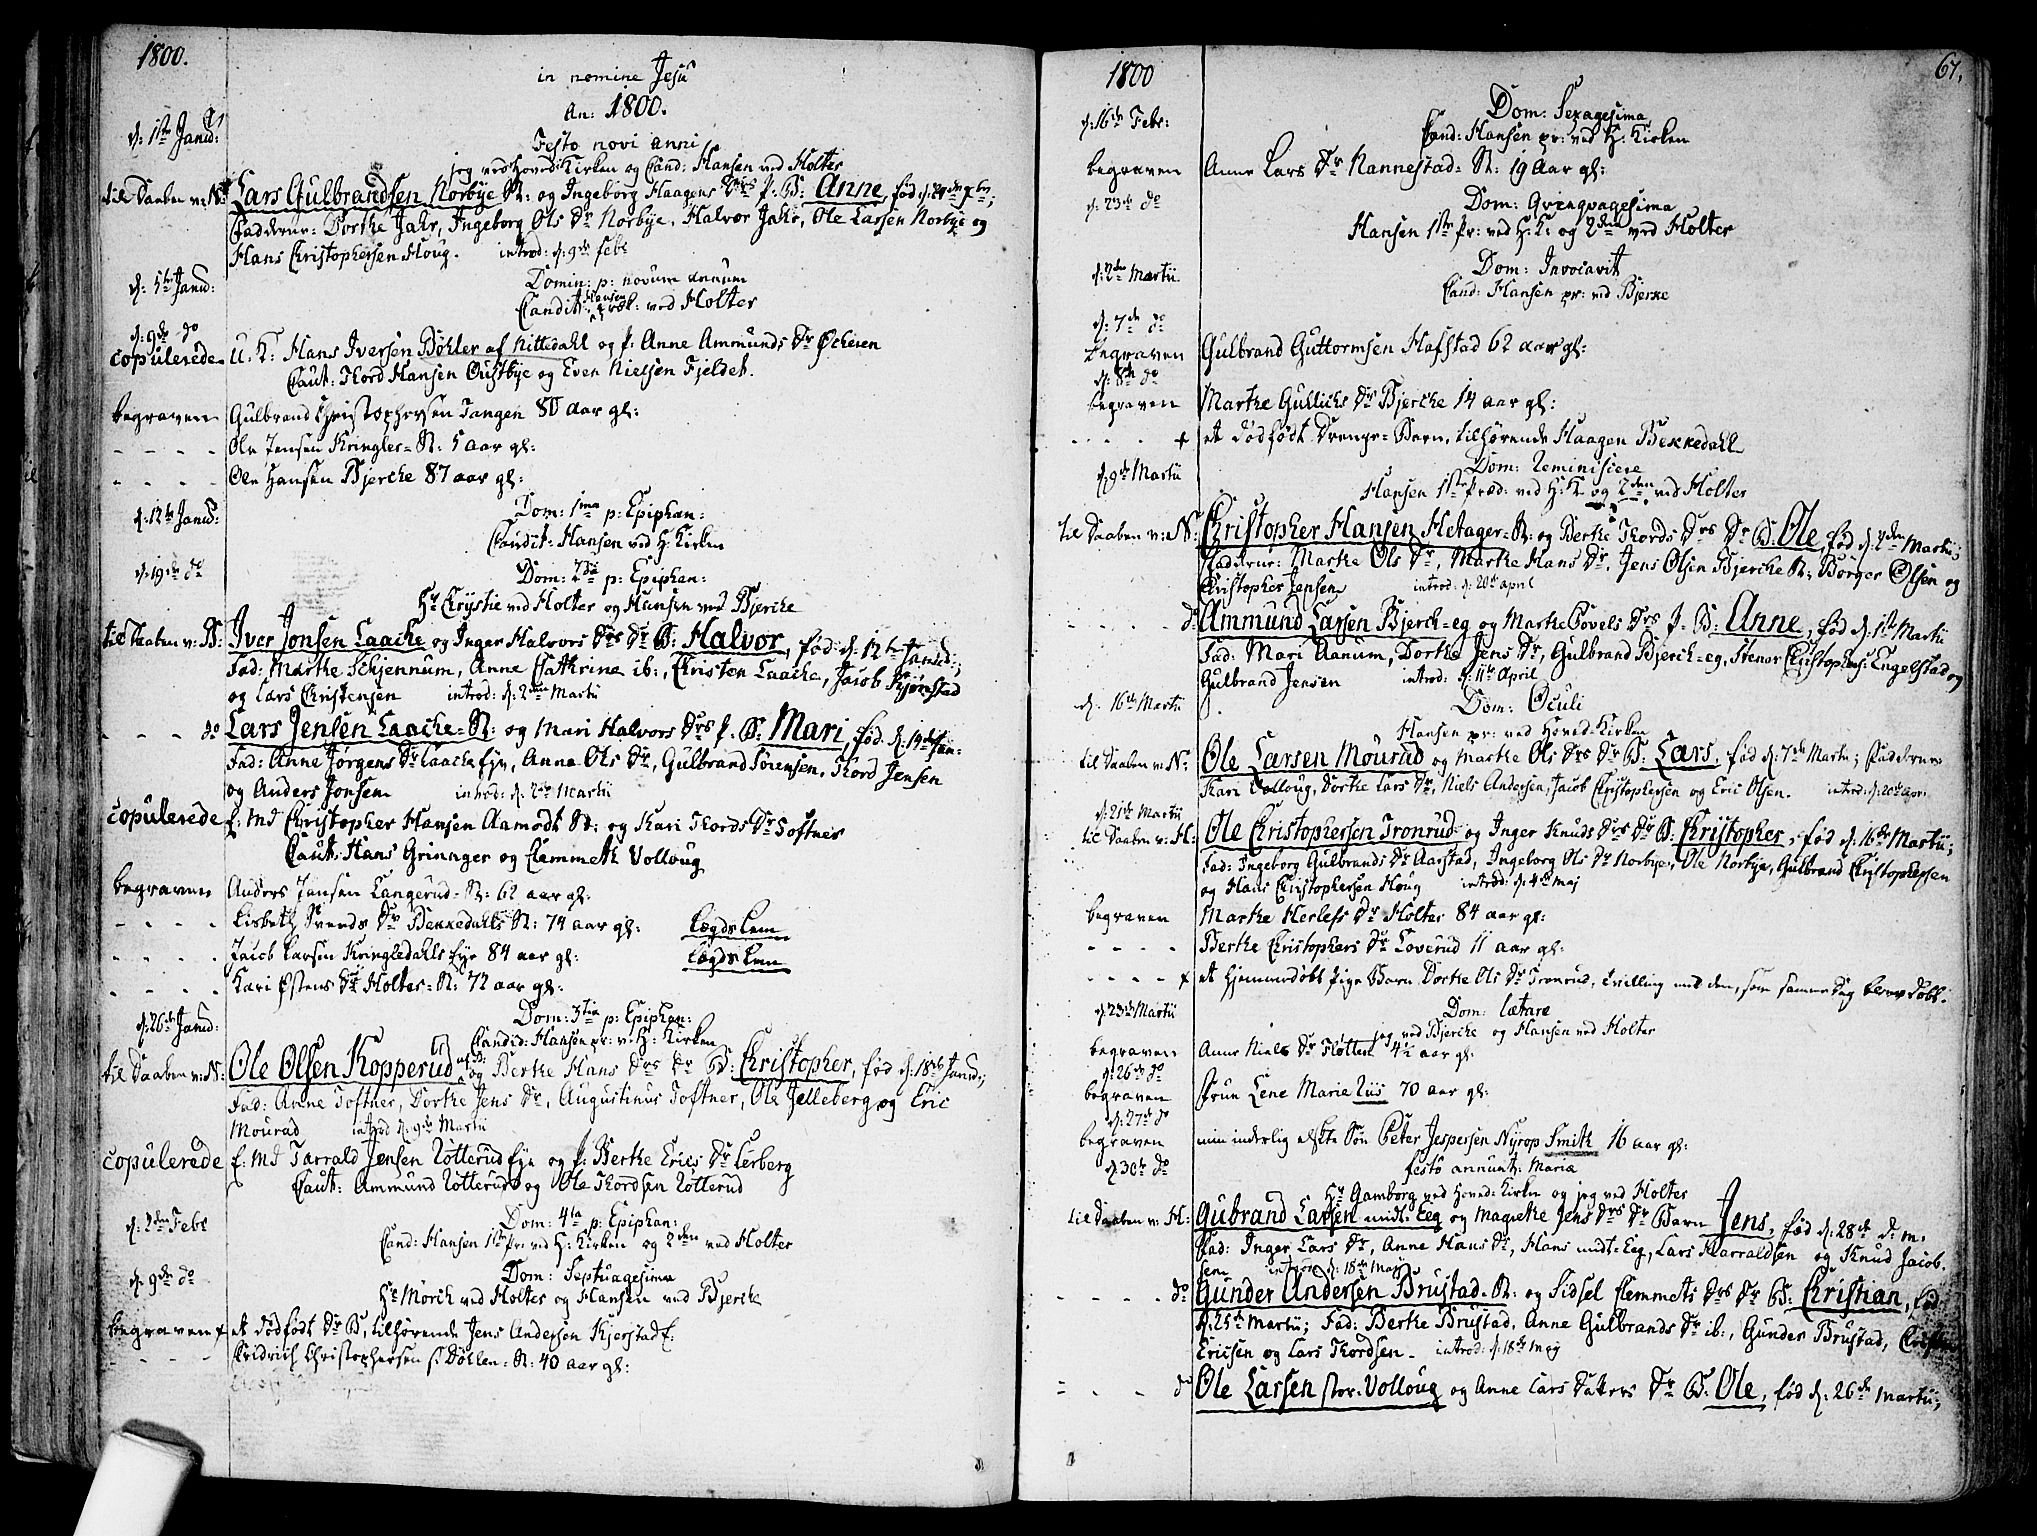 1800.
in nomine Jesu
An: 1800.
d: 1ste Janu:
Festo novi anni
jeg ved Hoved Kirken og Cand: Hansen ved Holter
til Daaben v: N: Lars Gulbrandsen Norbye St: og Ingeborg Haagens Drs P. B: Anne, fød d: 29de
Fadderne: Dorthe Jahr, Ingeborg Ols Dr Norbye, Halvor Jahr, Ole Larsen Norbye og
Hans Christophersen Houg. introd: d: 9de Febr
d: 5te Janu:
Domin: p: novum annum
Candit: Hansen præd: ved Holter
d: 9de do
copulerede U. K: Hans Iversen Böhler af Nittedahl og P. Anne Ammunds Dr Ocheren
Caut: Thord Hansen Oustbye og Even Nielsen Fjeldet.
begraven Gulbrand Christophersen Tangen 80 aar gl:
- - - - Ole Jensen Kringler-St: 5 aar gl:
- - - - Ole Hansen Bjercke 87 aar gl:
d: 12te Janu:
Dom: 1ma p: Epiphan:
Candit: Hansen ved H: Kirken
d: 19de do
Dom: 2da p: Epiphan:
Hr Chrystie ved Holter og Hansen ved Bjercke
til Daaben v: B: Iver Jonsen Laache og Inger Halvors Drs Dr B: Halvor, fød: d: 12te Janu:;
Fad: Marthe Schjennum, Anne Cathrine ib:, Christen Laache, Jacob Kjørstad
og Lars Christensen introd: d: 2den Martii
- - - do Lars Jensen Laache-St: og Mari Halvors Drs P. B: Mari, fød d: 14de Jan:
Fad: Anne Jørgens Dr Laache Eye, Anne Ols Dr, Gulbrand Sørensen, Thord Jensen
og Anders Jonsen introd: d: 2den Martii
copulerede E: Md Christopher Hansen Aamodt St: og Kari Thords Dr Toftner
Caut: Hans Grinager og Clemmeth Volloug
begraven Anders Jensen Langerud-St: 62 aar gl:
- - - - Lisbeth Svends Dr Bekkedahls St: 74 aar gl: Lægds Lem
- - - - Jacob Larsen Kringledahls Eye 84 aar gl: Lægds Lem
- - - - Kari Østens Dr Holter-St: 72 aar gl:
d: 26de Janu:
Dom: 3tia p: Epiphan:
Candid: Hansen pr: v: H: Kirken
til Daaben v: N: Ole Olsen Kopperud og Berthe Hans Drs Dr B: Christopher, fød d: 18de Janu:;
Fad: Anne Toftner, Dorthe Jens Dr, Augustinus Toftner, Ole Jelleberg og Eric
Mourud introd d: 9de Martii
copulerede E: Md Tarrald Jensen Rotterud Eye og P: Berthe Erics Dr Lerberg
Caut: Ammund Rotterud og Ole Thordsen Rotterud
d: 2den Febr
Dom: 4ta p: Epiphan:
Cand: Hansen 1ste Pr: ved H: Kirken og 2den ved Holter
d: 9de do
Dom: Septuagesima
Hr Mörch ved Holter og Hansen ved Bjercke
begraven + et dødfødt Dr B., tilhørende Jens Andersen Kjerstad E:
- - - Fridrich Christophersen Döhlen-St: 40 aar gl:
1800
67.
d: 16de Febr:
Dom: Sexagesima
Cand: Hansen pr: ved H: Kirken
begraven Anne Lars Dr Nannestad-St: 19 Aar gl:
d: 23de do
Dom: Qvinqvagesima
Hansen 1ste Pr: ved H: K: og 2den ved Holter
d: 2den Martii
Dom: Invocavit
Cand: Hansen pr: ved Bjerke
d: 7de do
begraven Gulbrand Guttormsen Hafstad 62 aar gl:
d: 8de do
begraven Marthe Gullichs Dr Bjercke 14 aar gl:
- - - - + et dödfödt Drenge-Barn, tilhørende Haagen Bekkedahl
d: 9de Martii
Dom: Reminiscere
Hansen 1ste Præd: ved H: K: og 2den ved Holter
til Daaben v: N: Christopher Hansen Hetager-St: og Berthe Thords Drs Dr B. Ole, fød d: 2den Martii;
Fadderne: Marthe Ols Dr, Marthe Hans Dr, Jens Olsen Bjercke St:, Borger Olsen og
Christopher Jensen introd: d: 20de april
- - - - do Ammund Larsen Bjerch-eg og Marthe Povels Drs P. B: Anne, fød d: 1ste Martii
Fad: Mari Aanum, Dorthe Jens Dr, Gulbrand Bjerch-eg, Stener Christophers: Engelstad og
Gulbrand Jensen introd: d: 11te April
d: 16de Martii
Dom: Oculi
Hansen pr: ved Hoved-Kirken
til Daaben v: N: Ole Larsen Mourud og Marthe Ols Drs Dr B: Lars, fød d: 7de Martii; Fadderne:
Kari Volloug, Dorthe Lars Dr, Niels Andersen, Jacob Christophersen og Eric Olsen. introd: d: 20de apr:
d: 21de Martii
til Daaben v: H: Ole Christophersen Tronrud og Inger Knuds Drs Dr B: Christopher, fød d: 16de Martii;
Fad: Ingeborg Gulbrands Dr Aarstad, Ingeborg Ols Dr Norbye, Ole Norbye, Gulbrand Christophersen
og Hans Christophersen Houg introd: d: 4de maj
begraven Marthe Herlefs Dr Holter 84 aar gl:
- - - - Berthe Christophers Dr Loverud 11 aar gl:
- - - - + et hjemmedøbt Pige Barn Dorthe Ols Dr Tronrud, tvilling med den, som samme Dag blev døbt.
d: 23de Martii
Dom: Lætare
jeg ved Bjercke og Hansen ved Holter
begraven Anne Niels Dr Fløtten 4½ aar gl:
d: 26de do
begraven Frue Lene Marie Riis 70 aar gl:
d: 27de do
begraven min inderlig elskte Søn Peter Jespersen Nyrop Smith 16 aar gl:
d: 30te do
festo annunt: Maria
Hr Gamborg ved Hoved-Kirken og jeg ved Holter
til Daaben v: H: Gubrand Larsen midt-Eeg og Magrethe Jens Drs Dr Barn Jens, fød d: 28de d: m.
Fad: Inger Lars Dr, Anne Hans Dr, Hans midt-Eeg, Lars Harraldsen og Knud Jacob-
sen introd: d: 18de Maj
- - - - do Gunder Andersen Brustad-St: og Sidsel Clemmets Drs Dr B: Christian, fød
d: 25de Martii; Fad: Berthe Brustad, Anne Gulbrands Dr ib:, Gunder Brustad, Christen
Ericsen og Lars Thordsen- introd: d: 18de Maj
- - - do Ole Larsen stor-Volloug og Anne Lars Datters Dr B: Ole, fød d: 26de Martii;